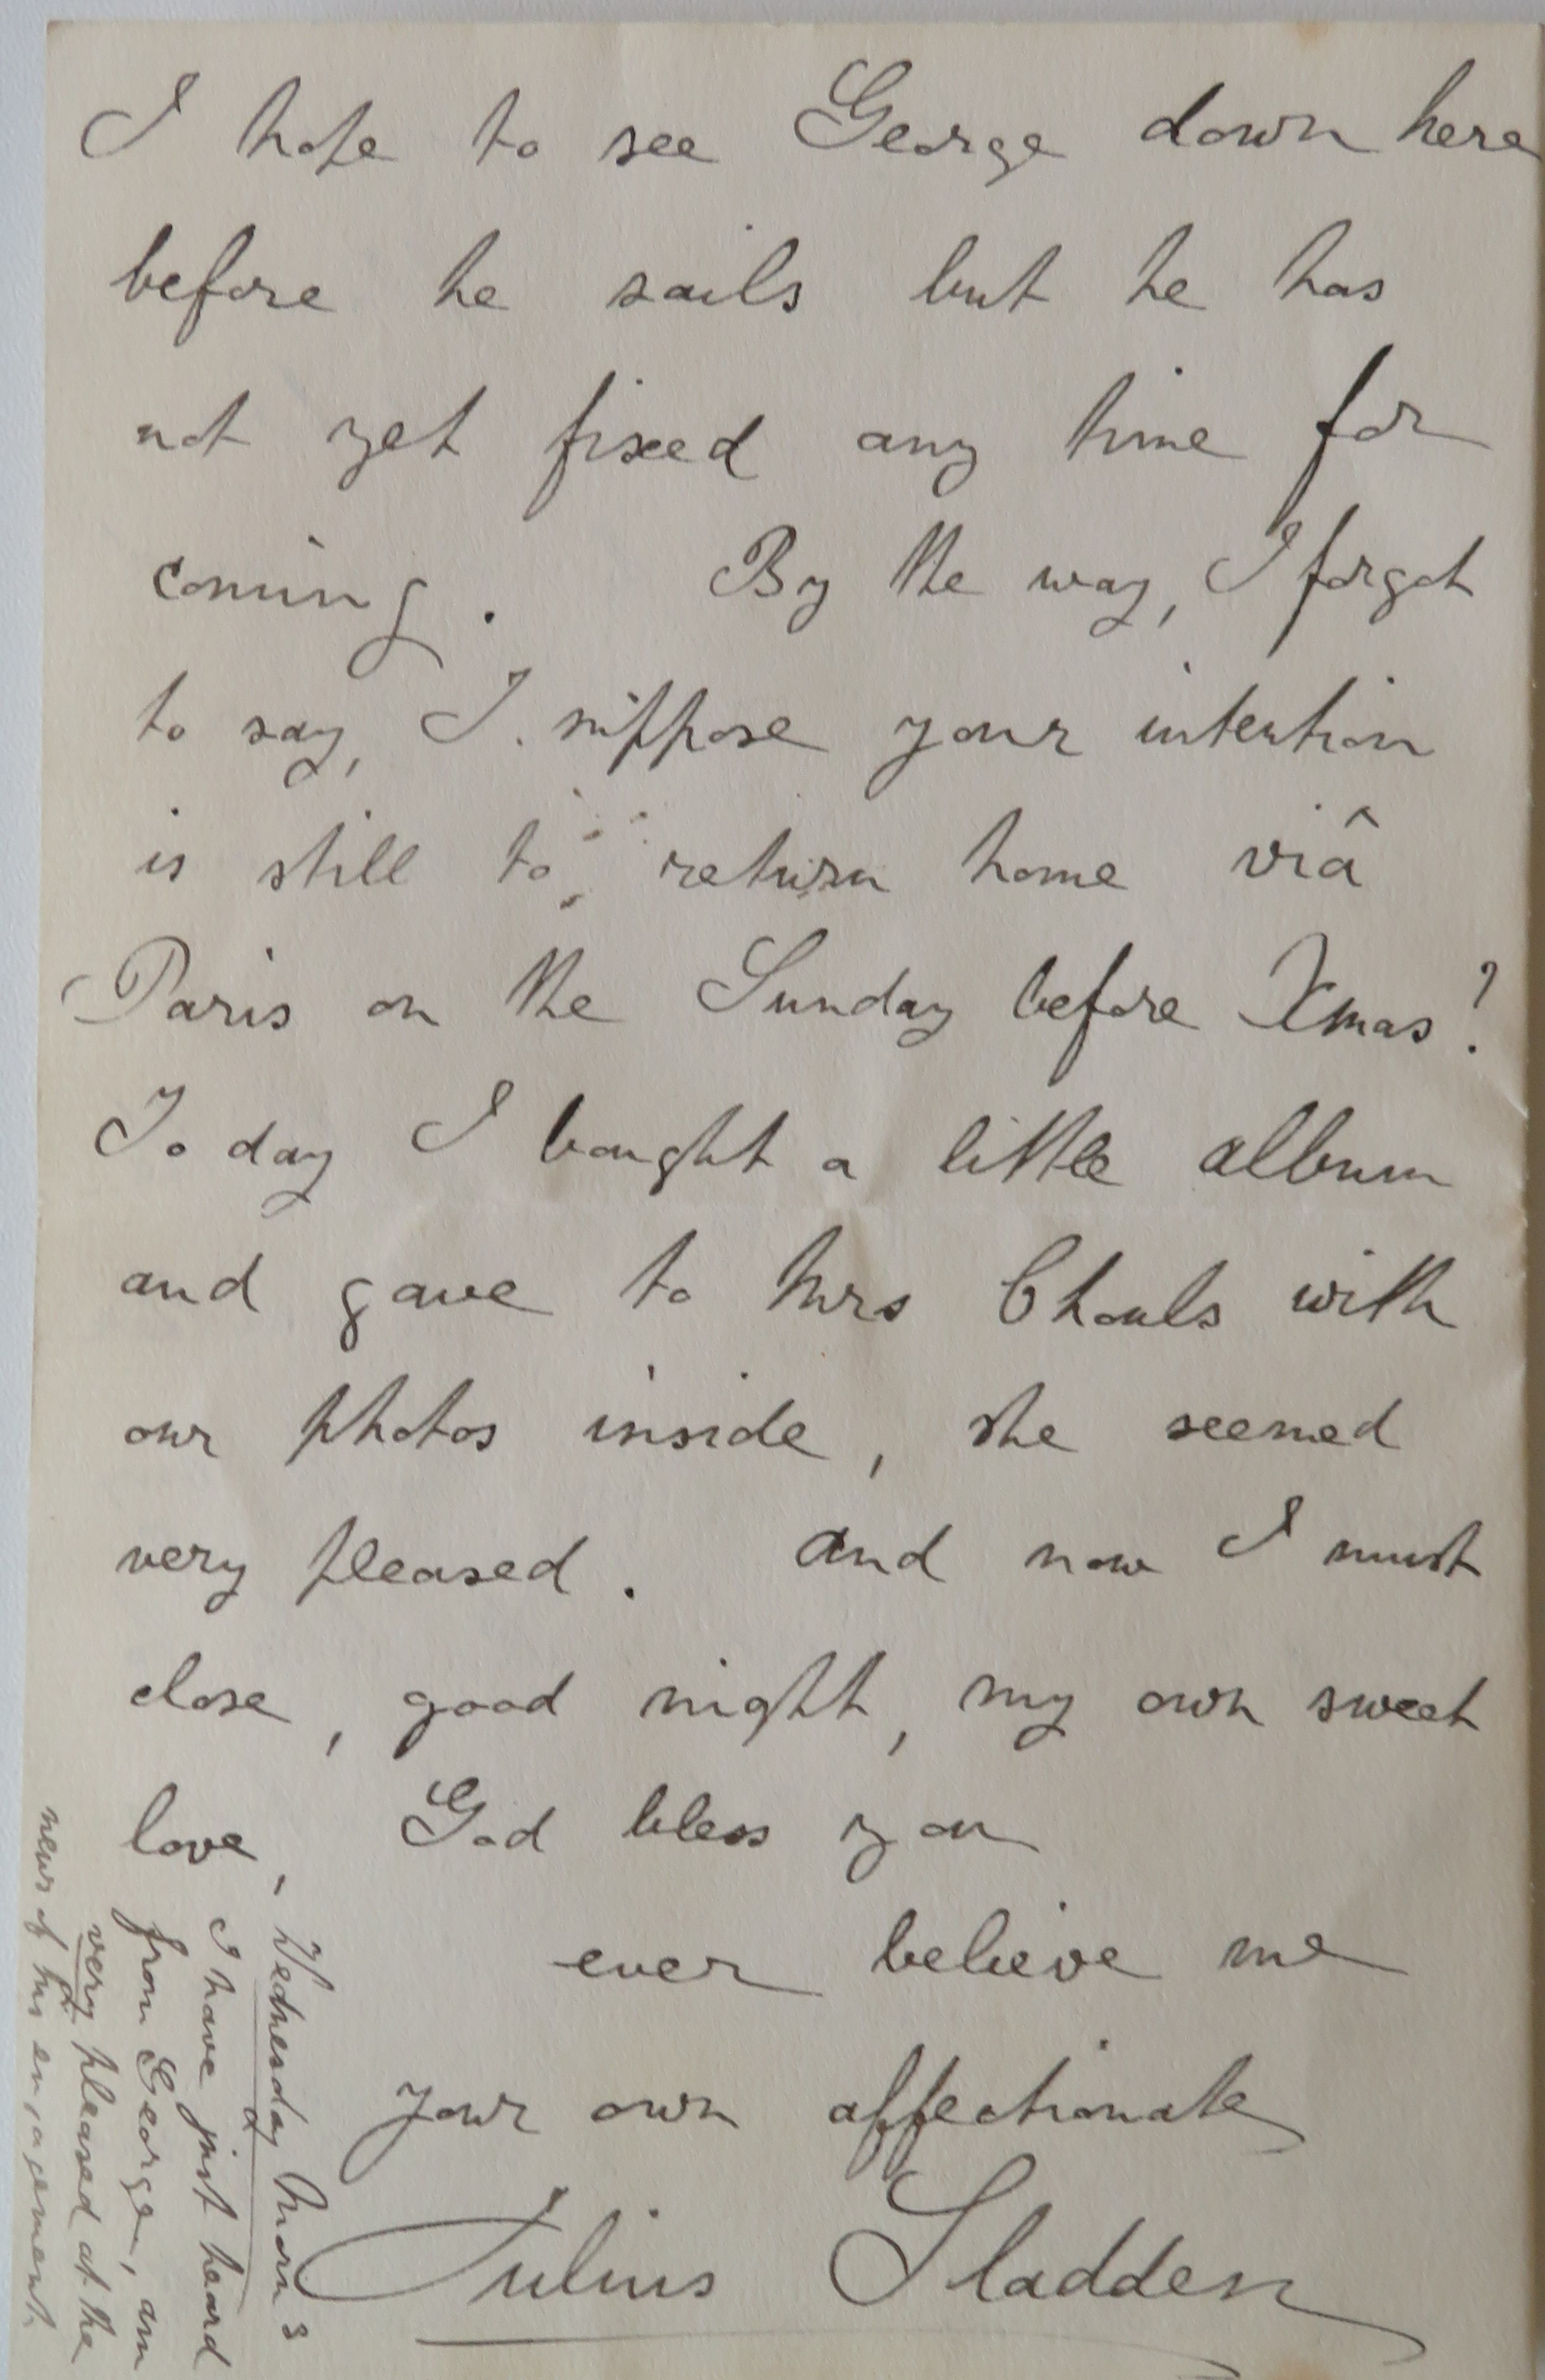 I hope to see George down here
before he sails but he has
not yet fixed any time for
coming. By the way, I forgot
to say, I suppose your intention
is still to return home viâ
Paris on the Sunday before Xmas?
To day I bought a little album
and gave to Mrs Choules with
our photos inside, she seemed
very pleased. And now I must
close, good night, my own sweet
love, God bless you
ever believe me
your own affectionate
Julius Sladden
Wednesday Morng
I have just heard
from George, am
very pleased at the
news of his engagement